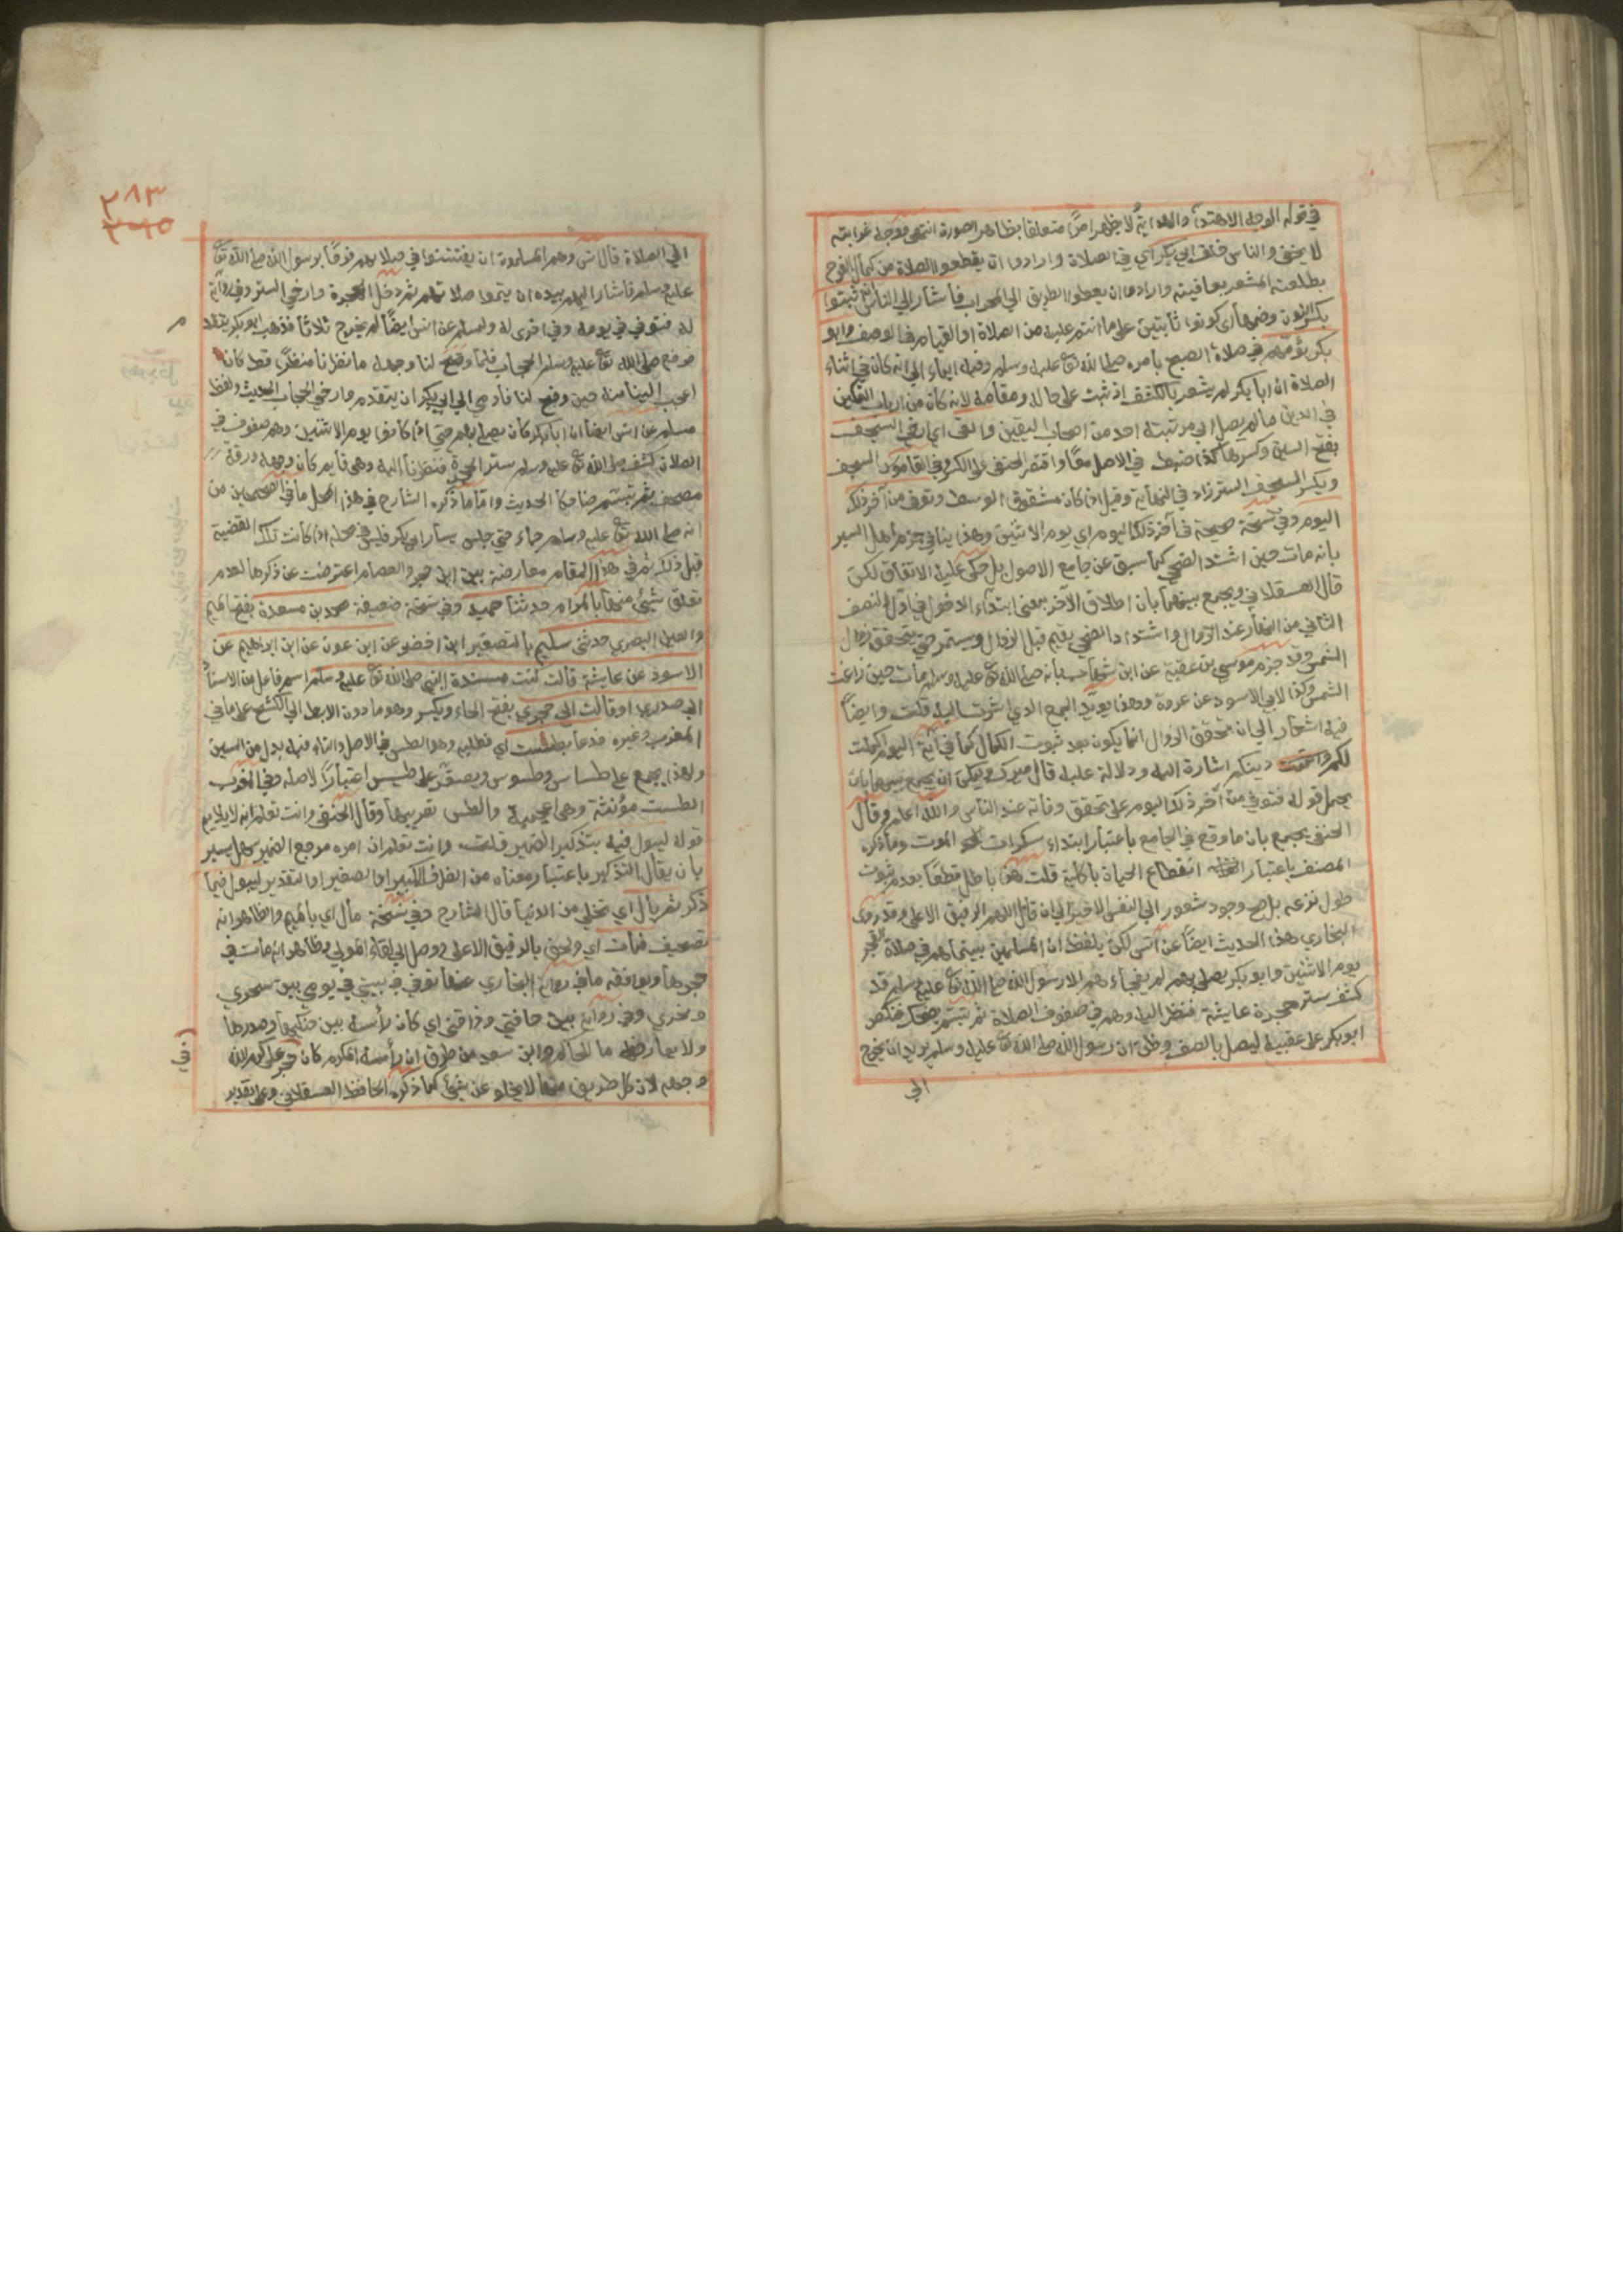 في قوله الوجه الاهتداء والهداية لا يظهر امرا متعلقا بظاهر الصورة انتهى ووجه غرابته
لا يخفى والناس خلف ابي بكر اي في الصلاة وارادوا ان يقطعوا الصلاة من كمال الفرح
بطلعته المشعر بعافيته وارادوا ان يعطوا الطريق الى المحراب فأشار الى الناس ان اثبتوا
بكسر النون وضمها اي كونوا ثابتين على ما انتم عليه من الصلاة او القيام في الوصف وابو
بكر يؤمهم في صلاة الصبح بامره صلى الله تع عليه وسلم وفيه ايماء الى انه كان في اثناء
الصلاة ان ابا بكر لم يشعر بالكشف اذ ثبت على حاله ومقامه لانه كان من ارباب التمكين
في الدين ما لم يصل الى مرتبته احد من اصحاب اليقين والقى اي ارخى السجف
بفتح السين وكسرها كذا ضبط في الاصل معا واقتصر الحنفي على الكسر وفي القاموس السجف
ويكسر السجف الستر زاد في النهاية وقيل اذا كان مشقوق الوسط وتوفي من آخر ذلك
اليوم وفي نسخة صحيحة في آخر ذلك اليوم اي يوم الاثنين وهذا ينافي جزم اهل السير
بانه مات حين اشتد الضحى كما سبق عن جامع الاصول بل حكى عليه الاتفاق لكن
قال العسقلاني ويجمع بينهما بان اطلاق الآخر بمعنى ابتداء الدخول في اول النصف
الثاني من النهار عند الزوال واشتداد الضحى يقع قبل الزوال ويستمر حتى يتحقق زوال
الشمس وقد جزم موسى بن عقبة عن ابن شهاب بأنه صلى الله تع عليه وسلم مات حين زاغت
الشمس وكذا لابي الاسود عن عروة وهذا يؤيد الجمع الذي اشرت اليه قلت وايضا
فيه اشعار الى ان تحقق الزوال انما يكون بعد ثبوت الكمال كما في آية اليوم اكملت
لكم دينكم اشارة اليه ودلالة عليه قال ميرك ويمكن ان يجمع بينهما بان
يحمل قوله فتوفي من آخر ذلك اليوم على تحقق وفاته عند الناس والله اعلم وقال
الحنفي يجمع بان ما وقع في الجامع باعتبار ابتداء سكرات الموت وما ذكره
المصنف باعتبار انقطاع الحياة بالكلية قلت هذا باطل قطعا بعدم ثبوت
طول نزعه بل صح وجود شعوره الى النفس الاخير الى ان قال اللهم الرفيق الاعلى وقد روى
البخاري هذا الحديث ايضا عن انس لكن بلفظ ان المسلمين بينما هم في صلاة الفجر
يوم الاثنين وابو بكر يصلي بهم لم يفجأهم الا رسول الله صلى الله تع عليه وسلم قد
كشف ستر حجرة عايشة فنظر اليه وهم في صفوف الصلاة ثم تبسم يضحك فنكص
ابو بكر على عقبيه ليصل بالصف وظن ان رسول الله صلى الله تع عليه وسلم يريد ان يخرج
الى
٢٨٣
الى الصلاة قال انس وهم المسلمون ان يفتتنوا في صلاتهم فرحا برسول الله صلى الله تع
عليه وسلم فأشار اليهم بيده ان يتموا صلاتهم ثم دخل الحجرة وارخى الستر وفي رواية
له فتوفي في يومه وفي اخرى له ولمسلم عن انس ايضا لم يخرج ثلاثا فذهب ابو بكر يتقدم
فرفع صلى الله تع عليه وسلم الحجاب فلما وضح لنا وجهه ما نظرنا منظرا قط كان
اعجب الينا منه حين وضح لنا فأومى الى ابي بكر ان يتقدم وارخى الحجاب الحديث ولفظ
مسلم عن انس ايضا ان ابا بكر كان يصلي بهم حتى اذا كانوا يوم الاثنين وهم صفوف في
الصلاة كشف صلى الله تع عليه وسلم ستر الحجرة فنظرنا اليه وهو قايم كأن وجهه ورقة
مصحف ثم تبسم ضاحكا الحديث واما ما ذكره الشارح في هذا المحل ما في الصحيحين من
انه صلى الله تع عليه وسلم جاء حتى جلس يسار ابي بكر فليس في محله اذا كانت تلك القضية
قبل ذلك ثم في هذا المقام معارضة بين ابن حجر والعصام اعترضت عن ذكرها لعدم
تعلق شيء منها بالمرام حدثنا حميد وفي نسخة ضعيفة محمد بن مسعدة بفتح الميم
والعين البصري حدثني سليم بالتصغير ابن اخضر عن ابن عون عن ابن ابراهيم عن
الاسود عن عايشة قالت كنت مسندة النبي صلى الله تع عليه وسلم اسم فاعل من الاسناد
الى صدري او قالت الى حجري بفتح الحاء ويكسر وهو ما دون الابط الى الكشح على ما في
المغرب وغيره فدعا بطست اي فطلبه وهو الطس في الاصل والتاء فيه بدل من السين
ولهذا يجمع على طساس وطسوس ويصغر على طسيس اعتبارا لاصله وفي المغرب
الطست مؤنثة وهي اعجمية والطس تعريبها وقال الحنفي وانت تعلم انه لا يلايم
قوله ليبول فيه بتذكير الضمير قلت وانت تعلم ان امره مرجع الضمير سهل يسير
بان يقال التذكير باعتبار معناه من الظرف الكبير او الصغير او التقدير ليبول فيما
ذكر ثم بال اي تخلى من الدنيا قال الشارح وفي نسخة مال اي بالميم والظاهر انه
تصحيف فمات اي ولحق بالرفيق الاعلى ووصل الى لقاء المولى وظاهره انه مات في
حجرها ويوافقه ما في رواية البخاري عنها توفي في بيتي في يومي بين سحري
ونحري وفي رواية بين حاقنتي وذاقنتي اي كان رأسه بين حنكها وصدرها
ولا يعارضه ما للحاكم وابن سعد من طرق ان رأسه المكرم كان في حجر علي كرم الله
وجهه لان كل طريق منها لا يخلو عن شيء كما ذكره الحافظ العسقلاني وعلى تقدير